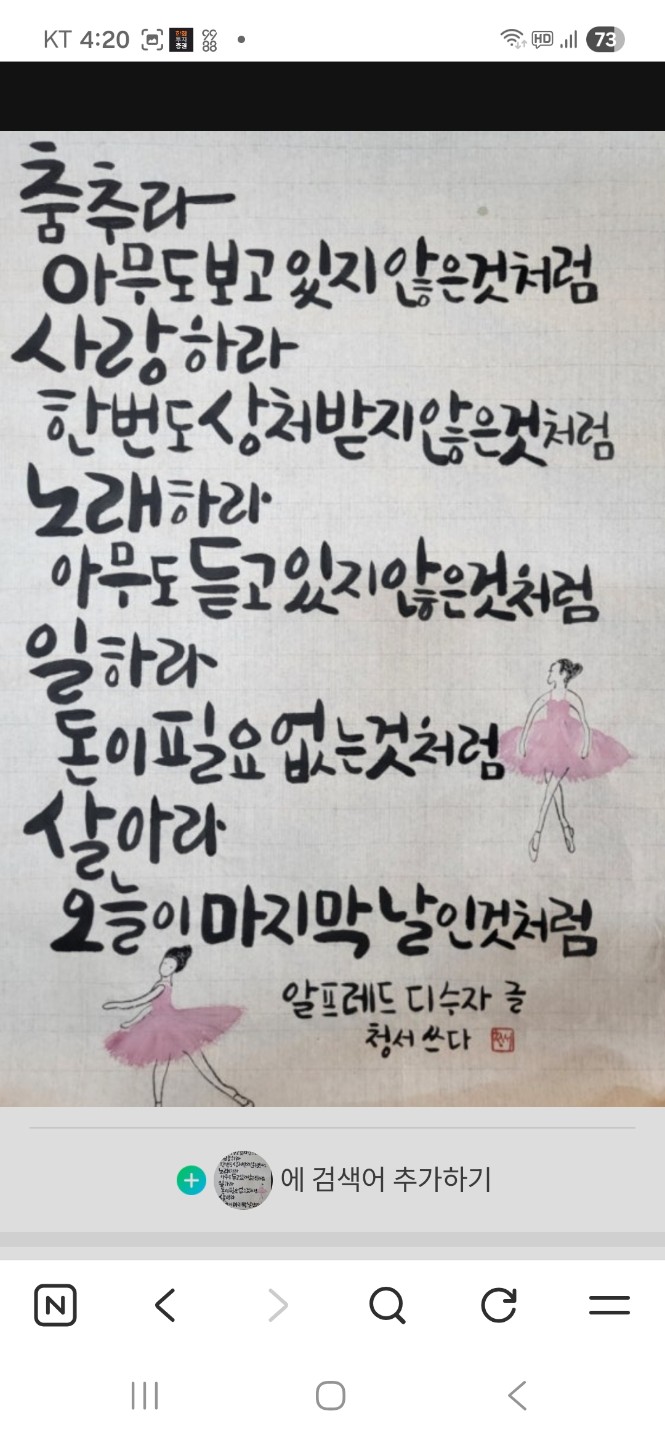 KT 4:20
HD
73
춤추라
아무도 보고 있지 않은 것처럼
사랑하라
한번도 상처받지 않은 것처럼
노래하라
아무도 듣고 있지 않은 것처럼
일하라
돈이 필요 없는 것처럼
살아라
오늘이 마지막 날인 것처럼
알프레드 디수자 글
청서 쓴다
에 검색어 추가하기
N